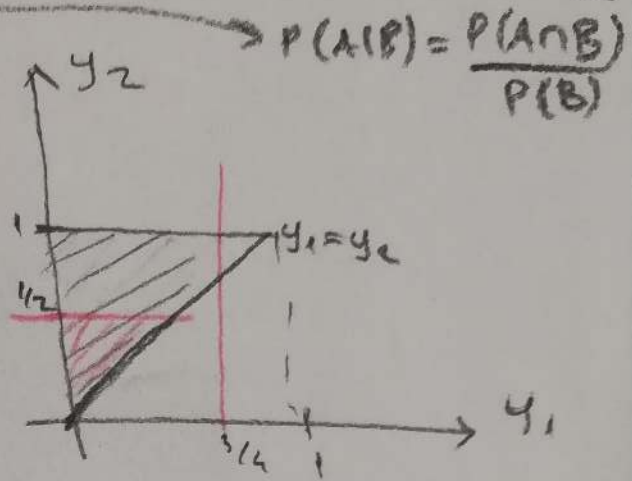 P(A|B) = P(A∩B) / P(B)
y₂
1
y₁ = y₂
1/2
3/4
1
y₁